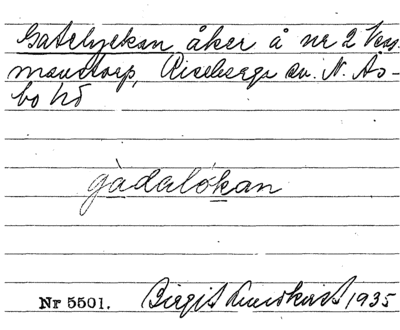 Gatelyckan åker å nr 2 Väs-
manstorp, Riseberga sn. N. Ås-
bo hd
gàdalókan
Nr 5501. Birgit Lundkvist 1935